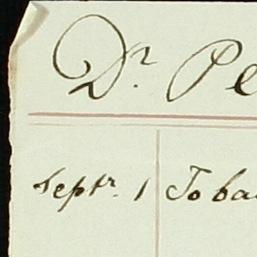 Dr. Pe
Septr. 1 To ba